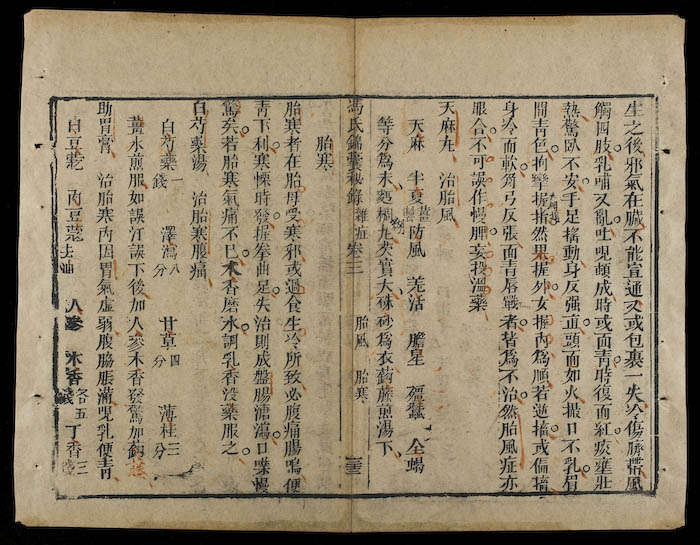 生之後邪氣在臟不能宣通又或包裹一失冷傷臍帶風
觸四肢乳哺又亂吐哯頻成時或面青時復面紅痰壅壯
熱驚臥不安手足搐動身反强直頭面如火撮口不乳眉
間青色拘攣握指然男握外女握內為順若逆搐或偏搐
身冷而軟角弓反張面青唇戰者皆為不治然胎風症亦
眼合不可誤作慢脾妄投溫藥
天麻丸　治胎風
天麻　半夏薑製　防風　羌活　膽星　殭蠶　全蝎
等分為末麵糊丸芡實大硃砂為衣鈎藤煎湯下
馮氏錦囊秘錄　雜症　卷三　胎風　胎寒　三
胎寒
胎寒者在胎母受寒邪或過食生冷所致必腹痛腸鳴便
青下利寒慄時發握拳曲足失治則成盤腸溏瀉口噤慢
驚矣若胎寒氣痛不已木香磨水調乳香没藥服之
白芍藥湯　治胎寒腹痛
白芍藥一錢　澤瀉八分　甘草四分　薄桂三分
薑水煎服如誤汗誤下後加人參木香發驚加鈎藤
助胃膏　治胎寒內因胃氣虛弱腹脇脹滿哯乳便青
白豆蔻　肉豆蔻去油　人參　木香各五錢　丁香三